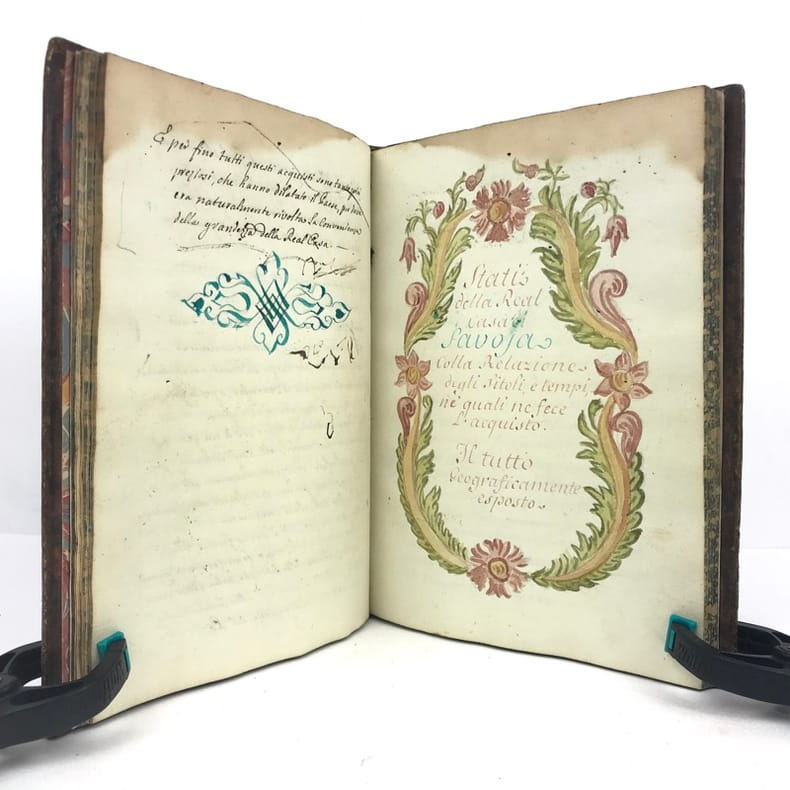 E per fino tutti questi acquisti sono tanto più
preziosi, che hanno dilatato il Paese, per dove
era naturalmente rivolta la Convenienza
della grandezza della Real Casa.
Stati
della Real
Casa di
Savoja
Colla Relazione
degli Titoli, e tempi,
ne quali ne fece
L'acquisto.
Il tutto
Geograficamente
esposto